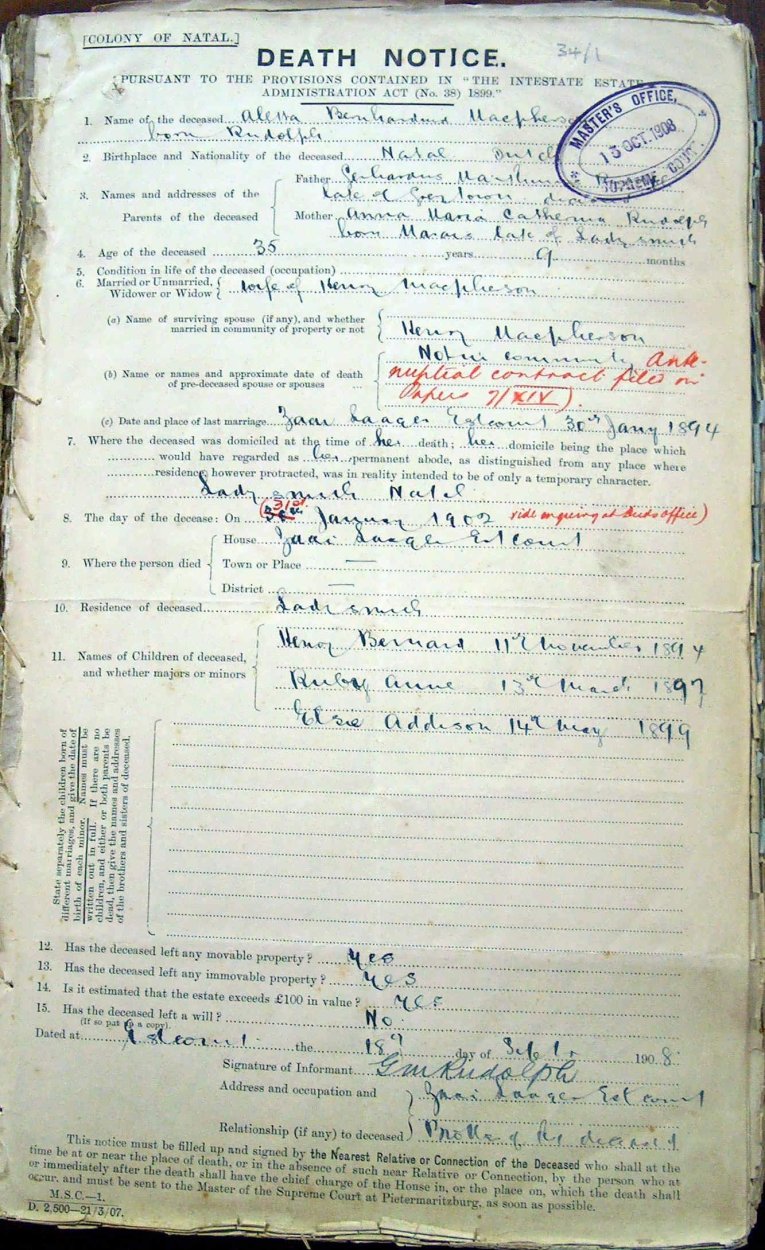 [COLONY OF NATAL.]
34/1
DEATH NOTICE.
PURSUANT TO THE PROVISIONS CONTAINED IN "THE INTESTATE ESTATE
ADMINISTRATION ACT (No. 38) 1899."
MASTER'S OFFICE,
13 OCT. 1908
SUPREME COURT.
1. Name of the deceased Aletta Bernhardina Macpherson
born Rudolph
2. Birthplace and Nationality of the deceased Natal Dutch
3. Names and addresses of the Parents of the deceased
Father Gerhardus Marthinus
late of Greytown
Mother Anna Maria Catherina Rudolph
born Marais late of Ladysmith
4. Age of the deceased 35 years 9 months
5. Condition in life of the deceased (occupation)
6. Married or Unmarried, Widower or Widow wife of Henry Macpherson
(a) Name of surviving spouse (if any), and whether married in community of property or not
Henry Macpherson
Not in community Ante-
(b) Name or names and approximate date of death of pre-deceased spouse or spouses
nuptial contract filed in
Papers 7/XIV).
(c) Date and place of last marriage Zaai Laager Estcourt 30th Jany 1894
7. Where the deceased was domiciled at the time of her death; her domicile being the place which
would have regarded as her permanent abode, as distinguished from any place where
residence, however protracted, was in reality intended to be of only a temporary character.
Ladysmith Natal
(31st
8. The day of the decease: On 30th January 1902 vide enquiry at Deeds office)
9. Where the person died
House Zaai Laager Estcourt
Town or Place —
District —
10. Residence of deceased Ladysmith
11. Names of Children of deceased, and whether majors or minors
Henry Bernard 11th November 1894
Ruby Anne 13th March 1897
Elsie Addison 14th May 1899
State separately the children born of
different marriages, and give the date of
birth of each minor. Names must be
written out in full. If there are no
children, and either or both parents be
dead, then give the names and addresses
of the brothers and sisters of deceased.
12. Has the deceased left any movable property? Yes
13. Has the deceased left any immovable property? Yes
14. Is it estimated that the estate exceeds £100 in value? Yes
15. Has the deceased left a will? No
(If so put in a copy).
Dated at Estcourt the 18th day of Septr 1908
Signature of Informant GMRudolph
Address and occupation and Zaai Laager Estcourt
Relationship (if any) to deceased Brother of the deceased
This notice must be filled up and signed by the Nearest Relative or Connection of the Deceased who shall at the
time be at or near the place of death, or in the absence of such near Relative or Connection, by the person who at
or immediately after the death shall have the chief charge of the House in, or the place on, which the death shall
occur, and must be sent to the Master of the Supreme Court at Pietermaritzburg, as soon as possible.
M.S.C.—1.
D. 2,500—21/3/07.